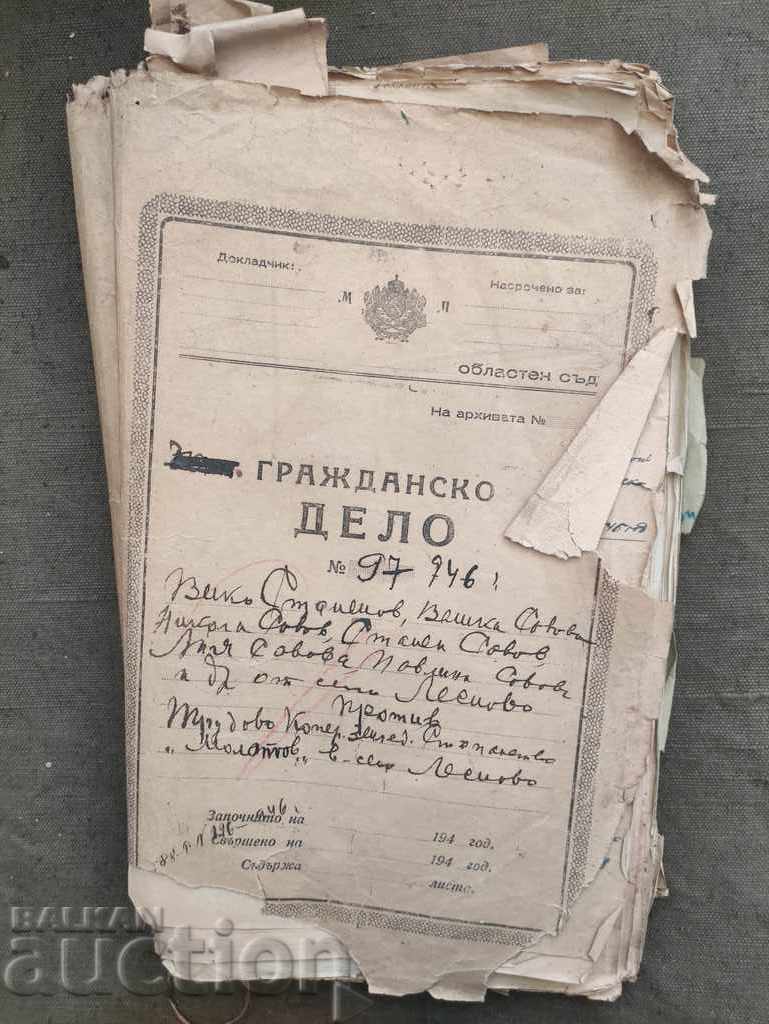 Докладчик:
Насрочено за:
М П
ОБЛАСТЕН СЪД
На архивата №
ГРАЖДАНСКО
ДЕЛО
№ 97 946
Велко Станчов, Вешка Савова
Никола Савов, Станчо Савов,
Савова Павлина Савова
и др от село Лесново
против
Трудово Копер. Землед. Стопанство
„Молотов" в село Лесново
Започнато на 194 год.
Свършено на 194 год.
Съдържа листа.
BALKAN
auction